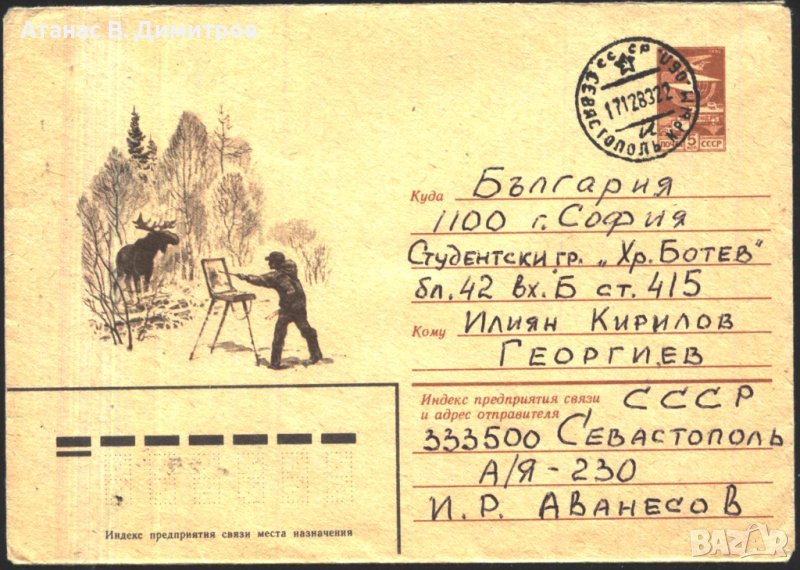 Атанас В. Димитров
СССР
СЕВАСТОПОЛЬ КРЫМ ОБЛ.
17128322
И
ПОЧТА 5 СССР
Куда България
1100 г. София
Студентски гр. „Хр. Ботев"
бл. 42 вх. Б ст. 415
Кому Илиян Кирилов
Георгиев
Индекс предприятия связи
и адрес отправителя
СССР
333500 Севастополь
А/Я-230
И. Р. Аванесов
Индекс предприятия связи места назначения
BAZAR